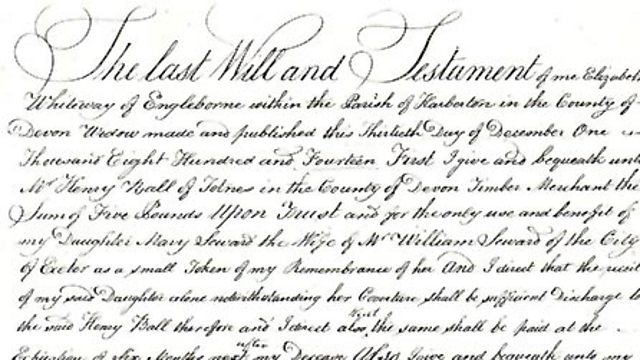 The last Will and Testament of me Elizabeth
Whiteway of Engleborne within the Parish of Harberton in the County of
Devon Widow made and published this Thirtieth Day of December One
Thousand Eight Hundred and Fourteen First I give and bequeath unto
Mr Henry Ball of Totnes in the County of Devon Timber Merchant the
Sum of Five Pounds Upon Trust and for the only use and benefit of
my Daughter Mary Seward the Wife of Mr William Seward of the City
of Exeter as a small Token of my Remembrance of her And I direct that the
of my said Daughter alone notwithstanding her Coverture shall be sufficient Discharge to
the said Henry Ball therefore and I direct also that the same shall be paid at the
Expiration of Six Months next after my Decease Also I give and bequeath unto my